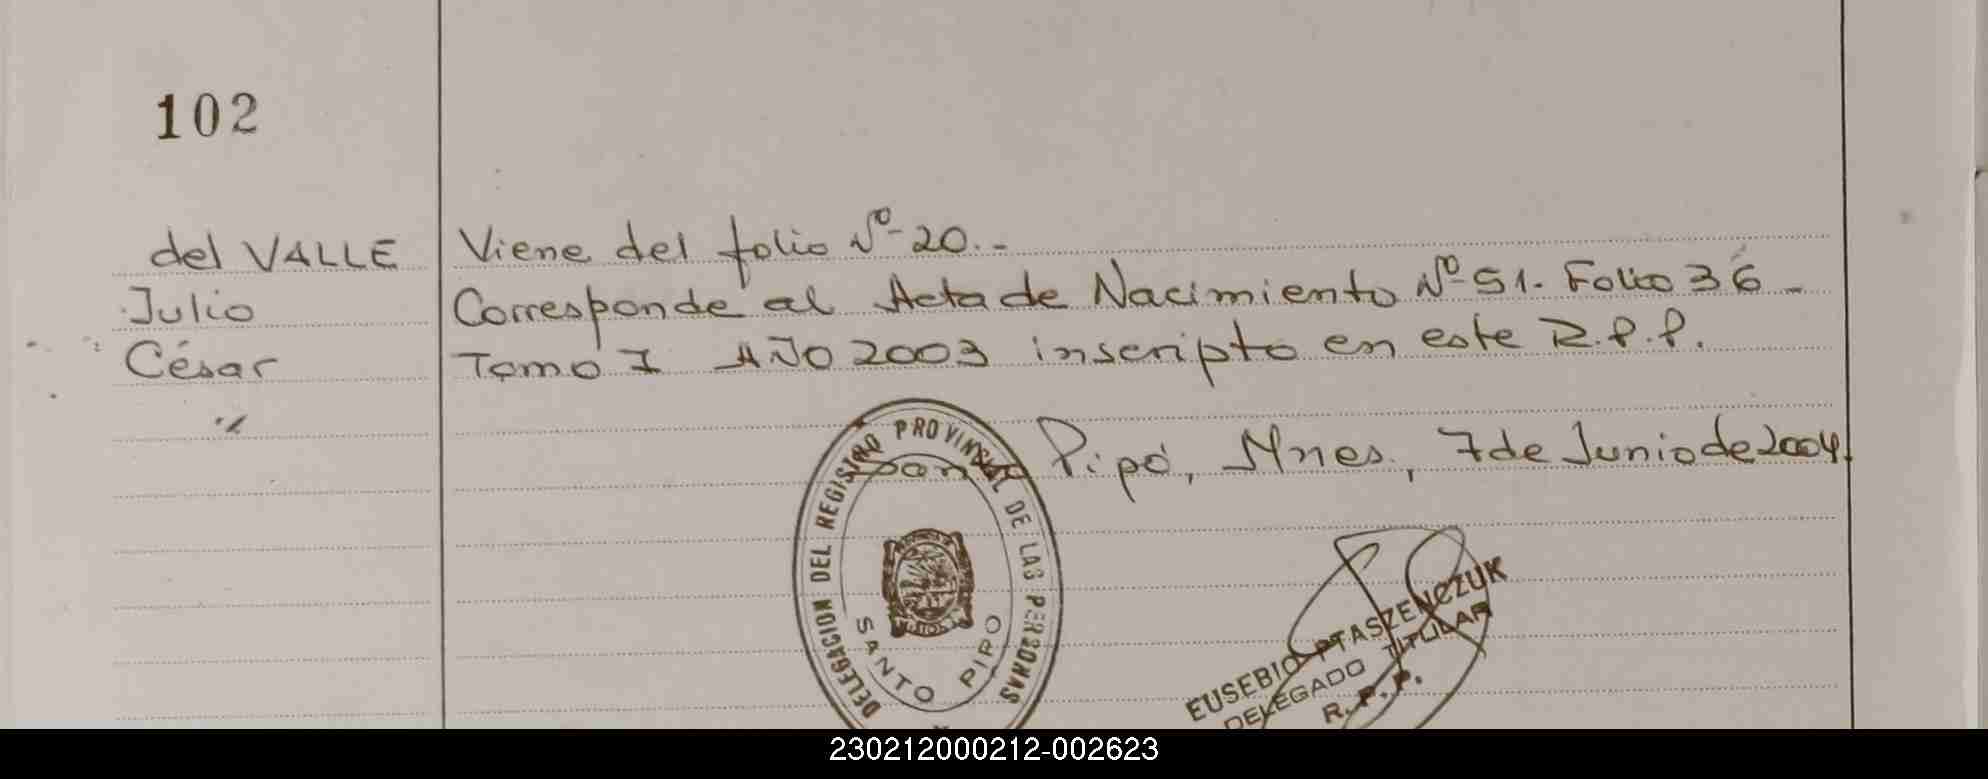 102
del VALLE Viene del folio Nº 20.-
Julio Corresponde al Acta de Nacimiento Nº 51. Folio 36 -
César Tomo I AÑO 2003 inscripto en este R.P.P.
Santo Pipó, Mnes, 7 de Junio de 2004.
DELEGACION DEL REGISTRO PROVINCIAL DE LAS PERSONAS
SANTO PIPO
EUSEBIO PTASZENCZUK
DELEGADO TITULAR
R.P.P.
230212000212-002623